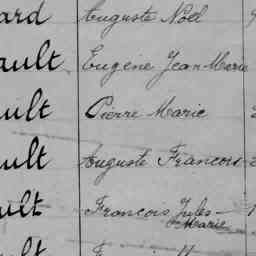 ard Auguste Noël
ault Eugène Jean Marie
ault Pierre Marie
ault Auguste Francois
ault Francois Jules-
Marie